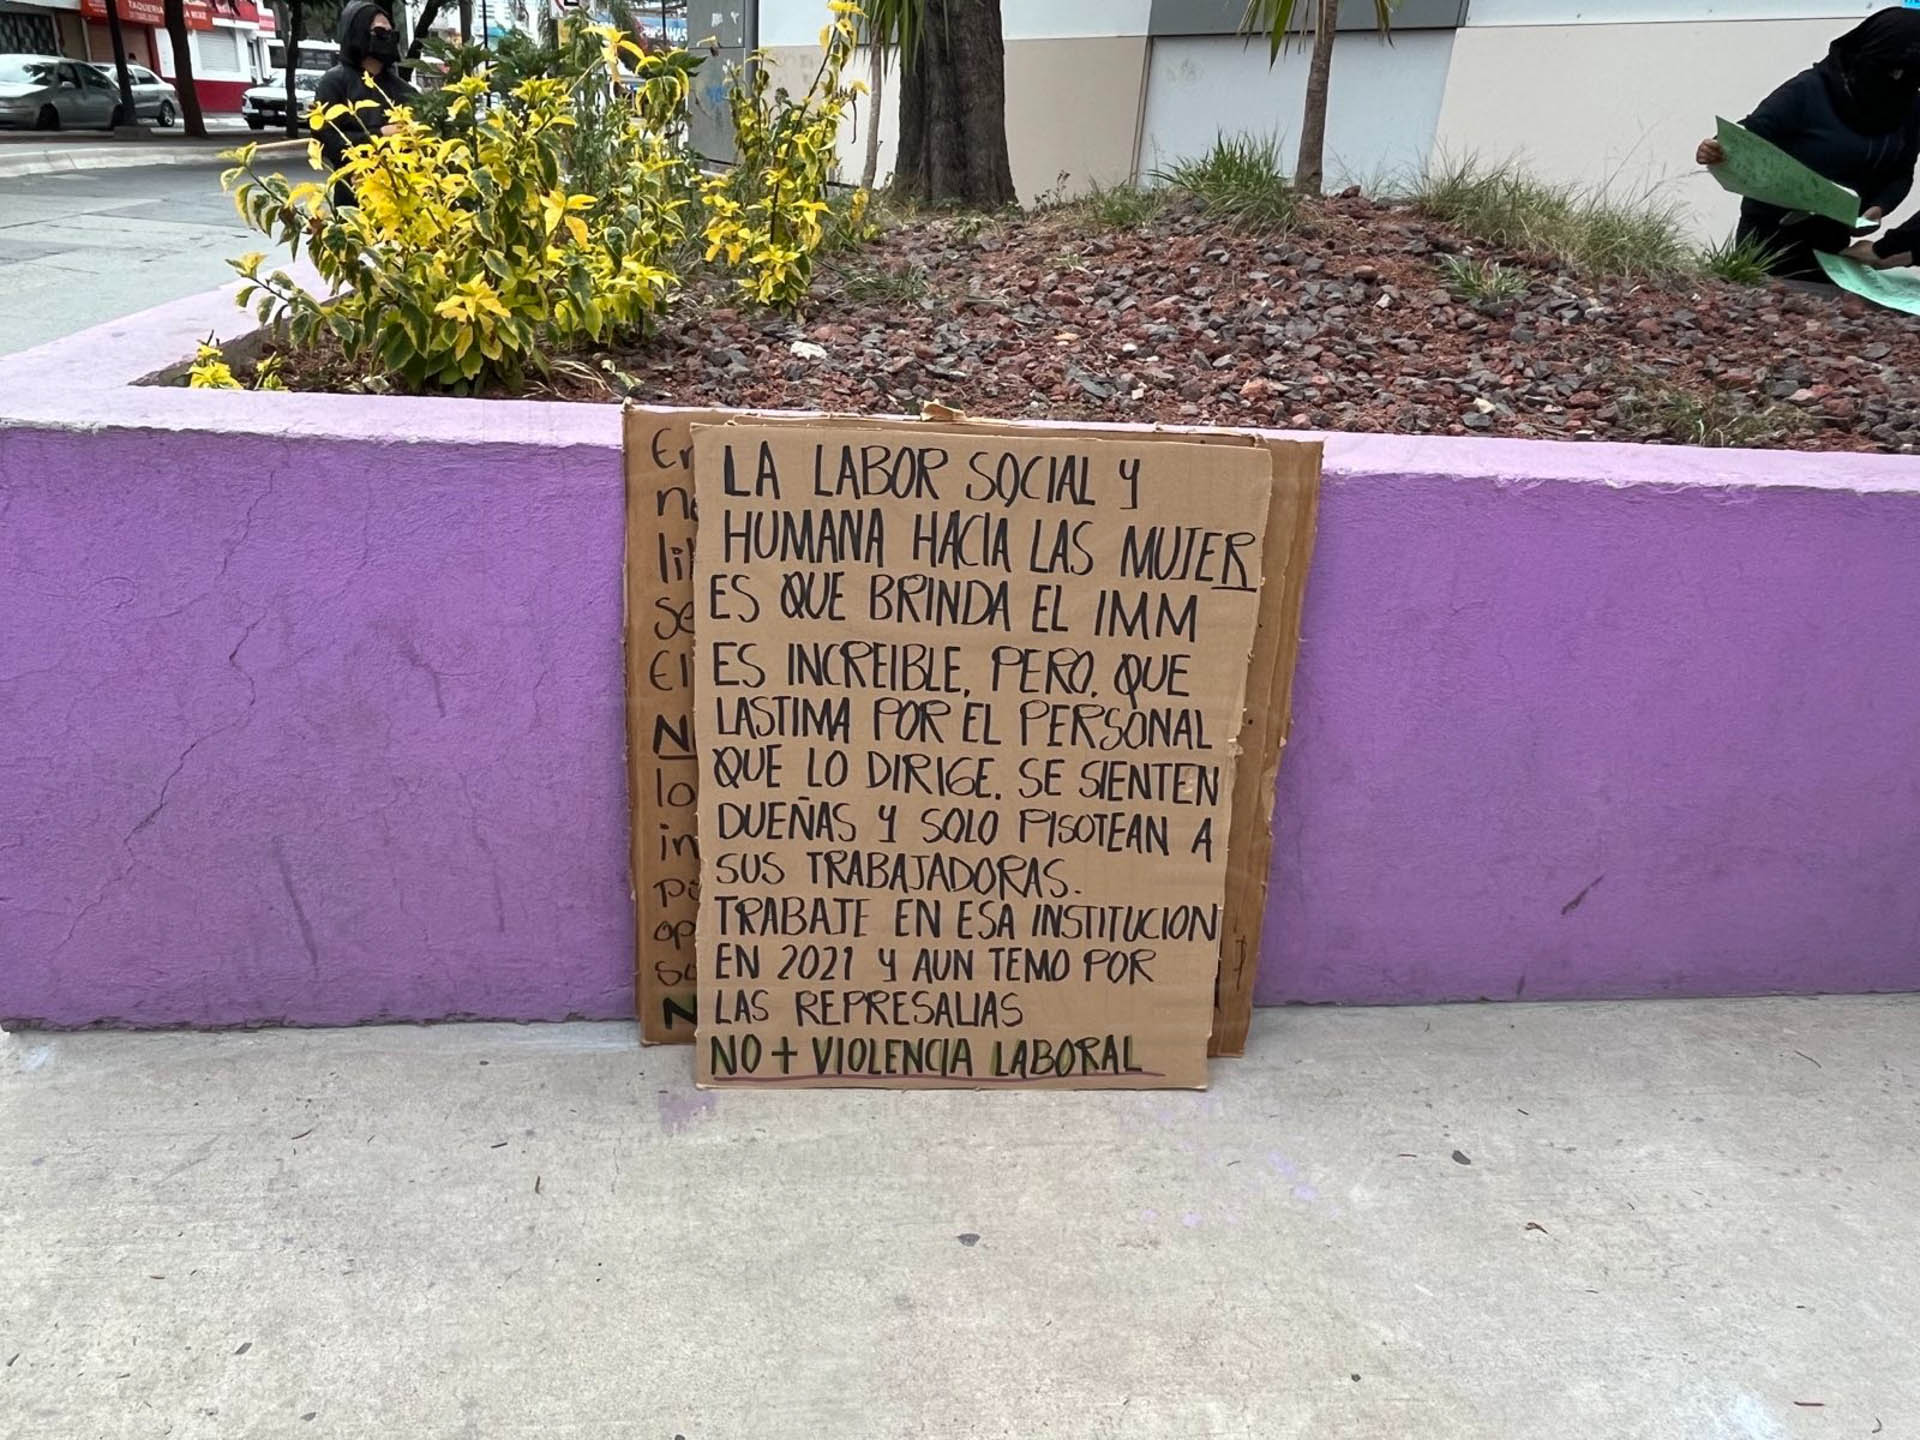 LA LABOR SOCIAL Y
HUMANA HACIA LAS MUJER
ES QUE BRINDA EL IMM
ES INCREIBLE, PERO, QUE
LASTIMA POR EL PERSONAL
QUE LO DIRIGE. SE SIENTEN
DUEÑAS Y SOLO PISOTEAN A
SUS TRABAJADORAS.
TRABAJE EN ESA INSTITUCION
EN 2021 Y AUN TEMO POR
LAS REPRESALIAS
NO + VIOLENCIA LABORAL